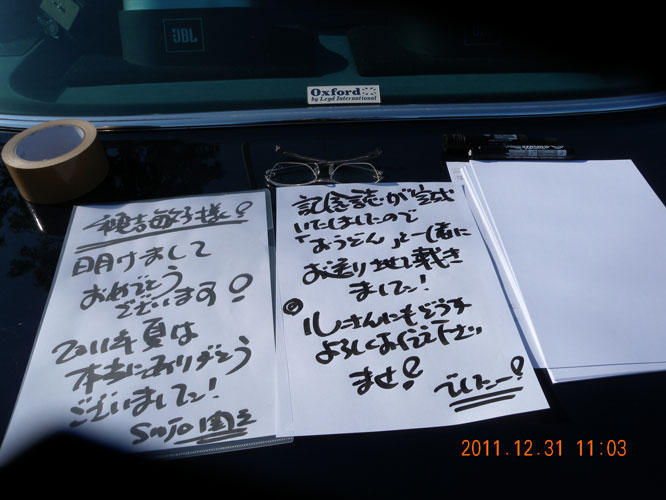 JBL
Oxford
by Loyd International
穐吉敏子様!
明けまして
おめでとう
ございます!
2011年夏は
本当にありがとう
ございました!
記念誌が完成
いたしましたので
「おうどん」と一緒に
お送りさせて戴き
ました!
ルーさんにもどうぞ
よろしくお伝え下さい
ませ!
でしたー!
2011.12.31 11:03